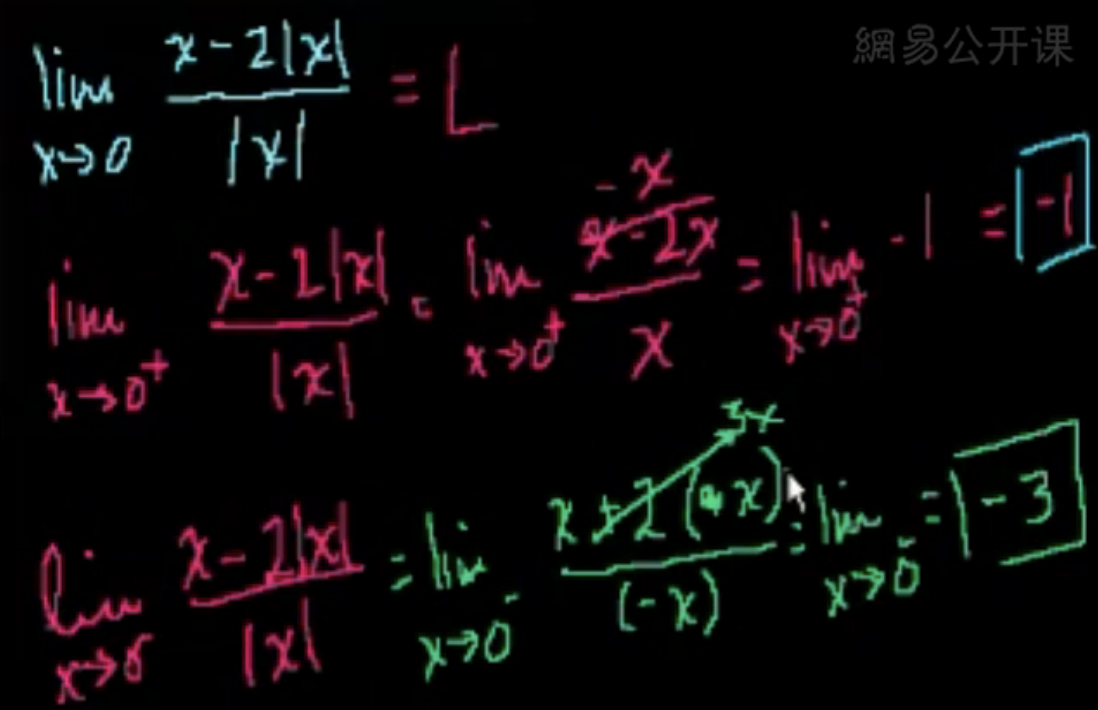 網易公开课
lim x→0 (x-2|x|)/|x| = L
lim x→0⁺ (x-2|x|)/|x| = lim x→0⁺ (x-2x)/x -x = lim x→0⁺ -1 = -1
lim x→0⁻ (x-2|x|)/|x| = lim x→0⁻ (x+2(x))/(-x) 3x = lim x→0⁻ = -3